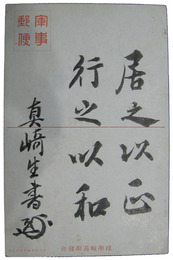 軍事
郵便
居之以正
行之以和
真崎生書